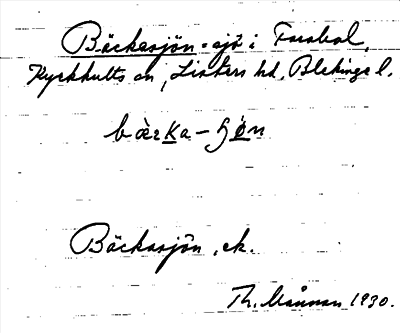 Bäckasjön = sjö i Farabol,
Kyrkhults sn, Listers hd, Blekinge l.
bàrka-ʃön
Bäckasjön, ek.
Th. Månsson 1930.